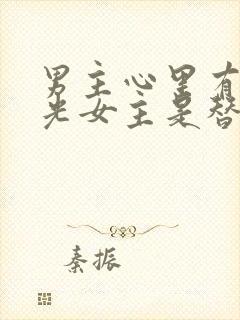 男主心里有
光女主是替
秦振